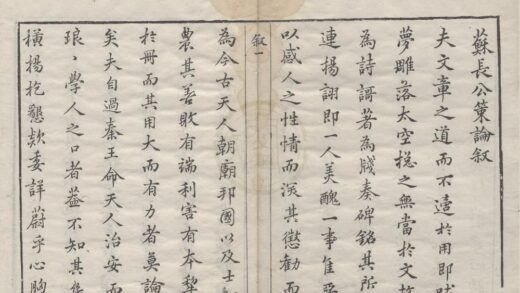 蘇長公策論叙
夫文章之道而不適於用即
夢雕落太空穆之無當於文
為詩謌著為牋奏碑銘其所
連揚詡即一人美醜一事
以感人之性情而深其懲勸而
叙一
為今古天人朝廟邦國以及士
農其善敗有端利害有本犂
於冊而其用大而有力者莫論
矣夫自過秦王命天人治安而
琅〻學人之口者葢不知其
橫揚抱懇欵委詳蔚乎心胸